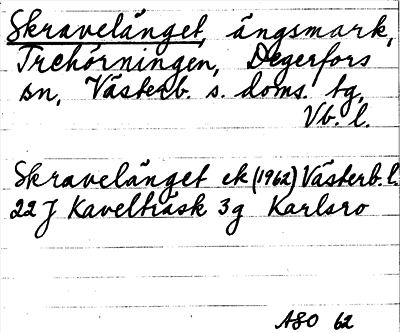 Skravelänget, ängsmark,
Trehörningen, Degerfors
sn, Västerb. s. doms. tg,
Vb. l.
Skravelänget ek (1962) Västerb. l.
22 J Kavelträsk 3g Karlsro
ASO 62